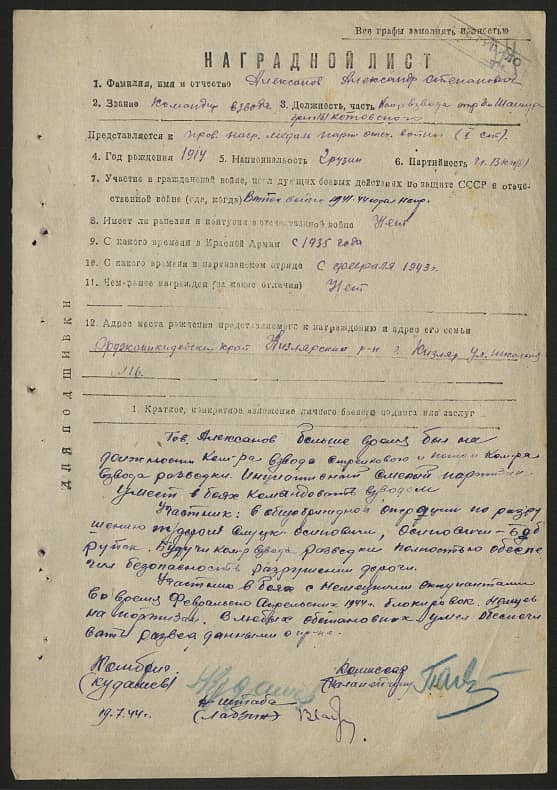 Все графы заполнять полностью
НАГРАДНОЙ ЛИСТ
1. Фамилия, имя и отчество Алексанов Александр Степанович
2. Звание Командир взвода 3. Должность, часть взвода отр. Шаш
Котовского
Представляется к медаль парт. отеч. войны (I ст).
4. Год рождения 1914 5. Национальность Грузин 6. Партийность чл. ВКП(б)
7. Участие в гражданской войне, последующих боевых действиях по защите СССР и отече-
ственной войне (где, когда) В отеч войне 1941-44
8. Имеет ли ранения и контузии в отечественной войне Нет
9. С какого времени в Красной Армии с 1935 года
10. С какого времени в партизанском отряде с февраля 1943 г.
11. Чем ранее награжден (за какие отличия) Нет
12. Адрес места рождения представляемого к награждению и адрес его семьи
Орджоникидзевский край Кизлярский р-н г. Кизляр ул.
№ 16.
ДЛЯ ПОДШИВКИ
1. Краткое, конкретное изложение личного боевого подвига или заслуг
Тов. Алексанов больше время был на
должности Ком-ра взвода стрелкового и Ком-ра
взвода разведки. Инициативный смелый партизан
умеет в боях командовать взводом
Участник: в общебригадной операции по разру
шению ж/дороги Слуцк-Осиповичи, Осиповичи-Боб
руйск. Будучи ком-р взвода разведки полностью обеспе
чил безопасность разрушения дороги.
Участник в боях с немецкими оккупантами
во время Февральско Апрельских 1944 г. блокировок немцев
на партизан. В любых обстановках умел обеспечи
вать развед данными
Комбриг Комиссар
(Кудашев)
Н штаба
19.7.44 г. (Лабзин)